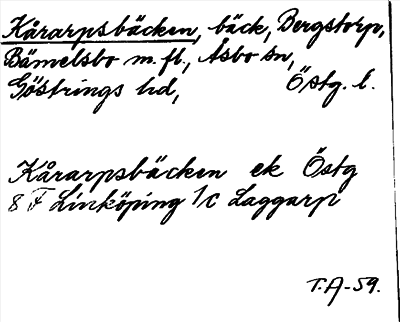 Kårarpsbäcken, bäck, Bergstorp,
Bämelsbo m.fl., Åsbo sn,
Göstrings hd, Östg. l.
Kårarpsbäcken ek Östg
8 F Linköping 1/c Laggarp
T.A-59.